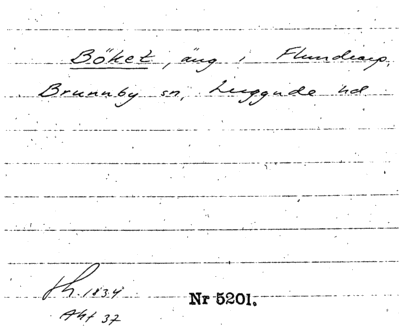 Böket, äng i Flundrarp.
Brunnby sn, Luggude hd
Sk. 1834
Akt 37
Nr 5201.